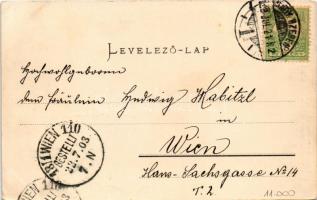 LEVELEZŐ-LAP
Hochwohlgeboren
dem Fräulein Hedwig Habitzl
in
Wien
Hans-Sachsgasse No 14
T. 2
WIEN 110
BESTELLT
7. N
WIEN 110
11.000